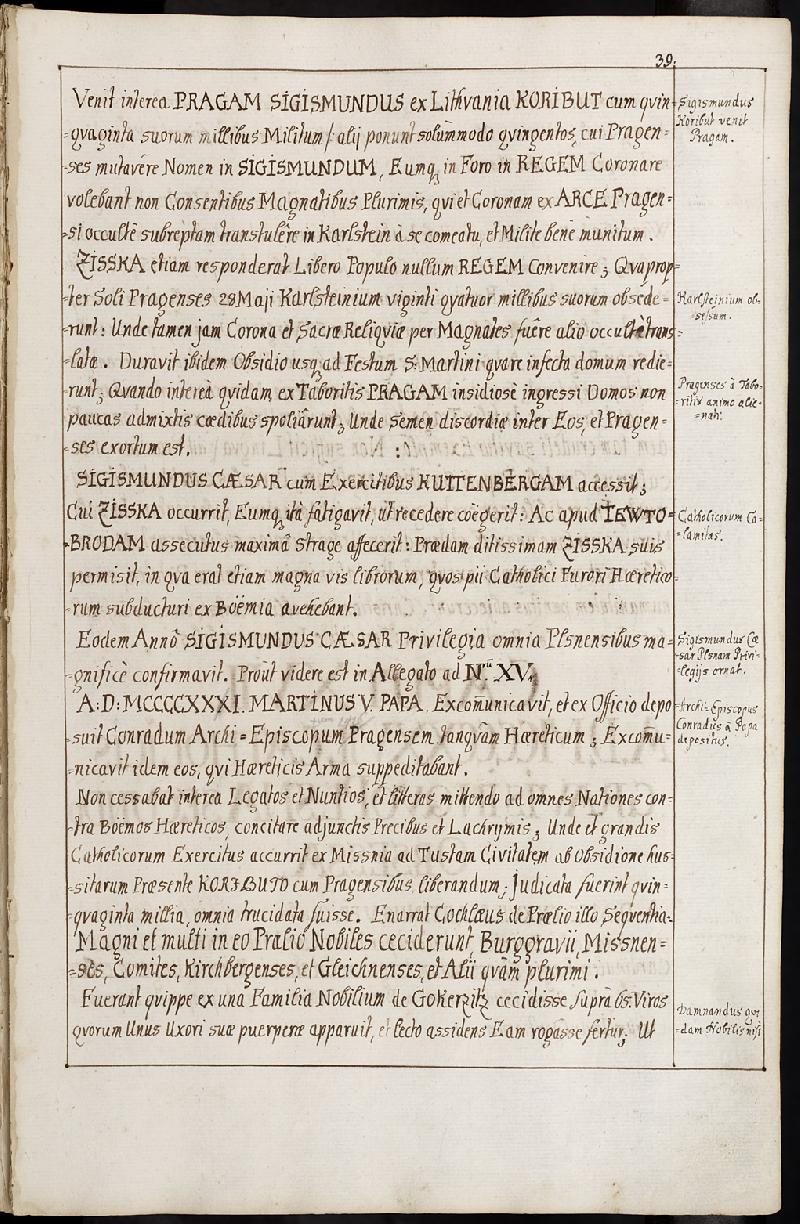 39.
Venit interea PRAGAM SIGISMUNDUS ex Lithvania KORIBUT cum qvin-
-qvaginta suorum millibus Militum /: alij ponunt solummodo qvingentos, cui Pragen-
-ses mutavére Nomen in SIGISMUNDUM, Eumq; in Foro in REGEM Coronare
volebant non Consentibus Magnatibus Plurimis, qvi et Coronam ex ARCE Pragen-
-si occultè subreptam transtulêre in Karlstein à se comeatu, et Milite bene munitum.
ZISSKA etiam responderat Libero Populo nullum REGEM Convenire; Qvaprop-
-ter Soli Pragenses 28 Maji Karlsteinium viginti qvatuor millibus suorum obsede-
-runt: Unde tamen jam Corona et Sacræ Reliqviæ per Magnates fuêre alio occultè trans-
-latæ. Duravit ibidem Obsidio usq; ad Festum S. Martini qvare infecta domum redie-
-runt; Qvando intereà qvidam ex Taboritis PRAGAM insidiosè ingressi Domos non
paucas admixtis cædibus spoliârunt; Unde Semen discordiæ inter Eos, et Pragen-
-ses exortum est.
SIGISMUNDUS CÆSAR cum Exercitibus KUTTENBERGAM accessit;
Cui ZISSKA occurrit, Eumq; ità fatigavit, ut recedere coëgerit: Ac apud TEWTO-
-BRODAM assecutus maximâ strage affecerit: Prædam ditissimam ZISSKA suis
permisit, in qva erat etiam magna vis librorum, qvos pii Catholici Furori Hæretico-
rum subducturi ex Boëmia avehebant.
Eodem Annô SIGISMUNDUS CÆSAR Privilegia omnia Plsnensibus ma-
-gnificè confirmavit. Proùt videre est in Allegato ad N.rum XV.
A: D: MCCCCXXXI. MARTINUS V. PAPA Excomunicavit, et ex Officio depo
-suit Conradum Archi-Episcopum Pragensem tanqvàm Hæreticum; Excomu-
-nicavit idem eos, qvi Hæreticis Arma suppeditabant.
Non cessabat interea Legatos et Nuntios, et litteras mittendo ad omnes Nationes con-
-tra Boëmos Hæreticos, concitare adjunctis Precibus et Lachrymis; Unde et grandis
Catholicorum Exercitus accurrit ex Missnia ad Tustam Civitatem ab obsidione hus-
-sitarum Præsente KORIBUTO cum Pragensibus liberandum; Judicata fuerint qvin-
-qvaginta millia, omnia trucidata fuisse. Enarrat Cochlæus de Prælio illo Seqventia.
Magni et multi in eo Prælio Nobiles ceciderunt, Burggravii, Missnen-
-ses, Comites, Kirchbergenses, et Gleichnenses, et Alii qvàm plurimi.
Fuerant qvippe ex una Familia Nobilium de Gokerzitz cecidisse supra 65. Viros
qvorum Unus Uxori suæ puerperæ apparuit, et lecto assidens Eam rogasse fertur; Ut
Sigismundus
Koribut venit
Pragam.
Karlsteinium ob-
-sessum.
Pragenses à Tabo-
-ritis animo alie-
-nati.
Catholicorum Ca-
-lamitas.
Sigismundus Cæ
-sar Plsnam Privi-
-legijs ornat.
Archi-Episcopus
Conradus à Papa
depositus.
Damnandus qvi
-dam Nobilis nisi